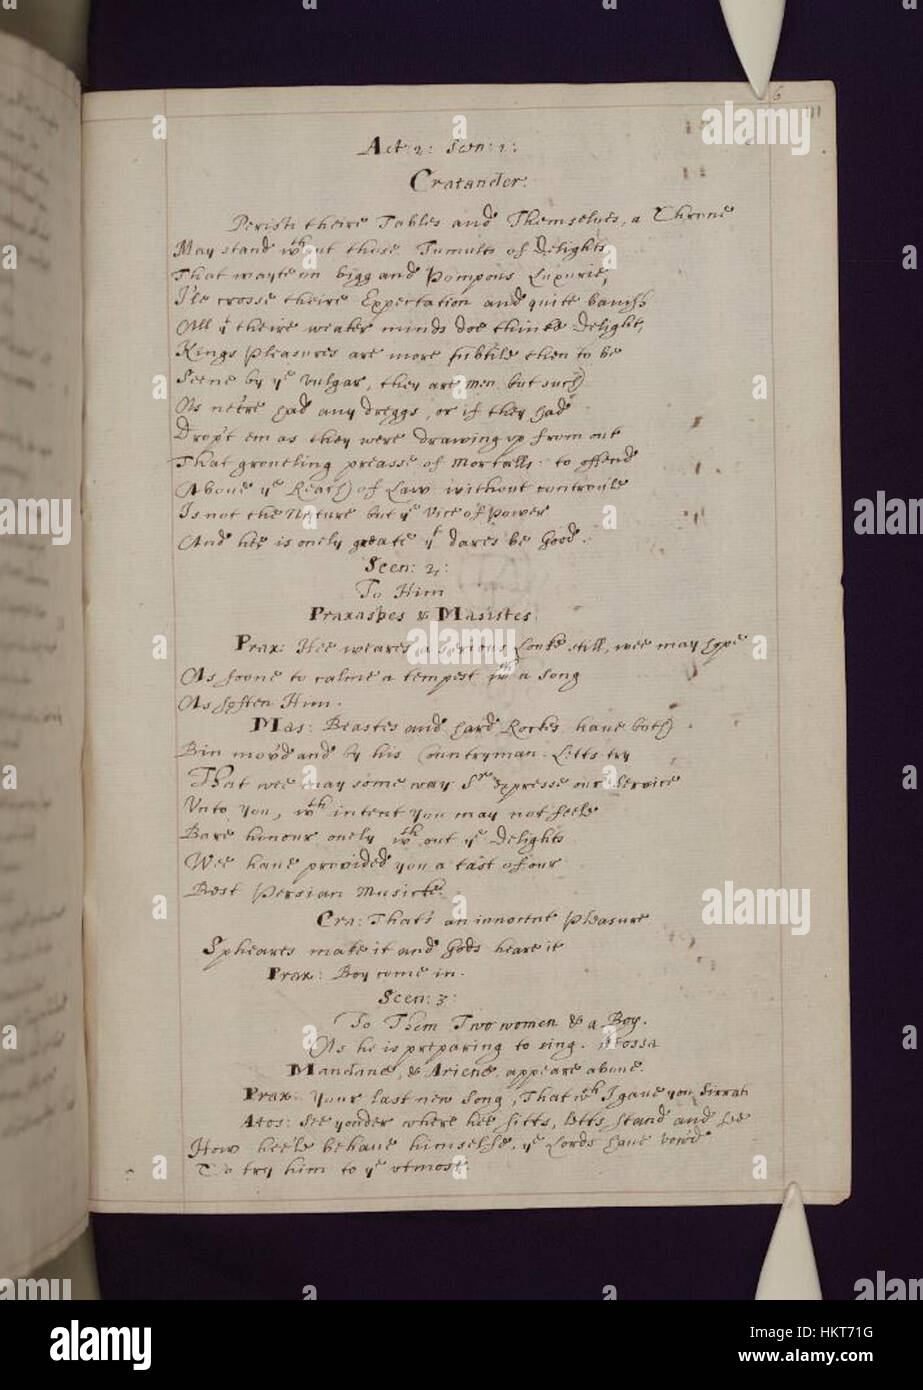 6
111
Act: 2: Scen: 1:
Cratander:
Perish theire Tables and Themselves, a Throne
May stand wthout those Tumults of Delights
That wayte on bigg and Pompous Luxurie,
I'le crosse theire Expectation and quite banish
All yt theire weaker minds doe thinke Delight,
Kings Pleasures are more subtile then to be
Seene by ye vulgar, they are men but such
As ne're had any dreggs, or if they had
Drop't em as they were drawing up from out
That groveling preasse of Mortalls: to offend
Above ye Reach of Law without controule
Is not the Nature but ye Vice of Power
And hee is onely greate yt dares be Good.
Scen: 2:
To Him
Praxaspes & Masistes
Prax: Hee weares a serious Looke still, wee may hope
As soone to calme a tempest wth a song
As soften Him.
Mas: Beastes and hard Rockes have both
Bin mov'd and by his Countryman. Letts try
That wee may some way Sr expresse our Service
Unto you, wth intent you may not feele
Bare honour onely wthout ye Delights
Wee have provided you a tast of our
Best Persian Musicke.
Cra: That's an innocent Pleasure
Spheares make it and Gods heare it
Prax: Boy come in.
Scen: 3:
To Them Two women & a Boy.
As he is preparing to sing. Atossa
Mandane, & Ariene, appeare above.
Prax: Your last new Song, That wch I gave you Sirrah
Atos: See yonder where hee sitts, letts stand and see
How hee'le behave himselfe, ye Lords have vow'd
To try him to ye utmost.
alamy
a
alamy stock photo
HKT71G
www.alamy.com